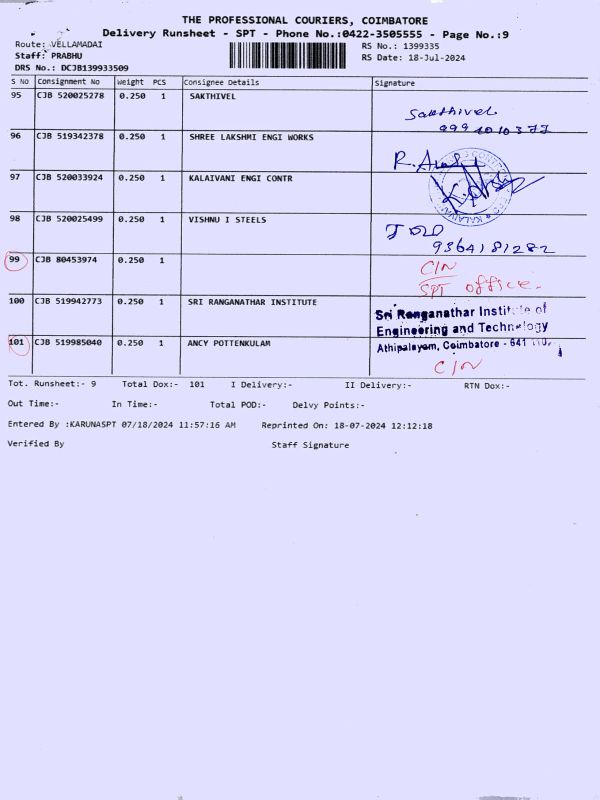 THE PROFESSIONAL COURIERS, COIMBATORE
Delivery Runsheet - SPT - Phone No.:0422-3505555 - Page No.:9
Route: VELLAMADAI RS No.: 1399335
Staff: PRABHU RS Date: 18-Jul-2024
DRS No.: DCJB139933509
S No Consignment No Weight PCS Consignee Details Signature
95 CJB 520025278 0.250 1 SAKTHIVEL
Sakthivel
96 CJB 519342378 0.250 1 SHREE LAKSHMI ENGI WORKS
97 CJB 520033924 0.250 1 KALAIVANI ENGI CONTR
98 CJB 520025499 0.250 1 VISHNU I STEELS
9364181282
99 CJB 80453974 0.250 1
C/N
SPT office.
100 CJB 519942773 0.250 1 SRI RANGANATHAR INSTITUTE
Sri Ranganathar Institute of
Engineering and Technology
101 CJB 519985040 0.250 1 ANCY POTTENKULAM
Athipalayam, Coimbatore - 641
C/N
Tot. Runsheet:- 9 Total Dox:- 101 I Delivery:- II Delivery:- RTN Dox:-
Out Time:- In Time:- Total POD:- Delvy Points:-
Entered By :KARUNASPT 07/18/2024 11:57:16 AM Reprinted On: 18-07-2024 12:12:18
Verified By Staff Signature